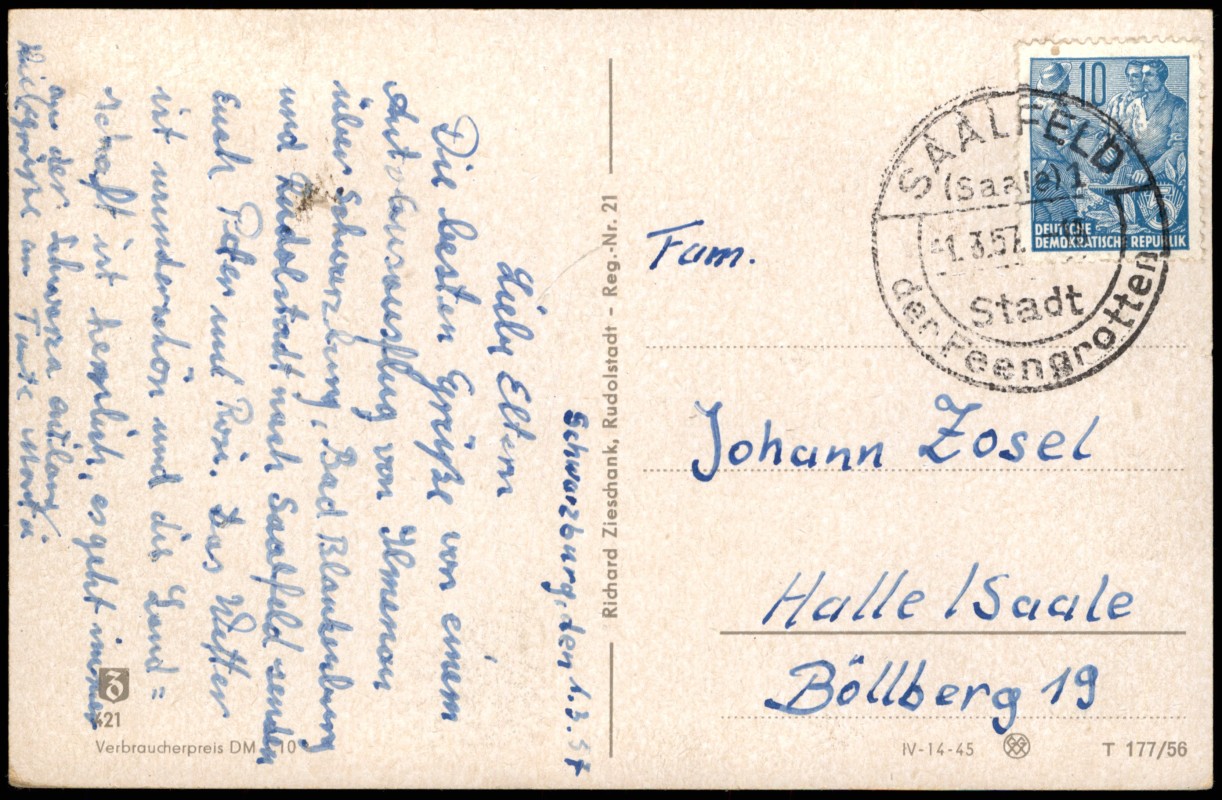 Schwarzburg, den 1.3.57
Liebe Eltern,
Die besten Grüße von einem
Autobusausflug von Ilmenau
über Schwarzburg, Bad Blankenburg
und Rudolstadt nach Saalfeld senden
Euch Peter und Rosi. Das Wetter
ist wunderschön und die Land=
schaft ist herrlich, es geht immer
an der Schwarza entlang
an Tante
Richard Zieschank, Rudolstadt – Reg.-Nr. 21
10
DEUTSCHE
DEMOKRATISCHE REPUBLIK
SAALFELD
(Saale) 1
-1.3.57
Stadt
der Feengrotten
Fam.
Johann Zosel
Halle/Saale
Böllberg 19
421
Verbraucherpreis DM 10
IV-14-45
T 177/56